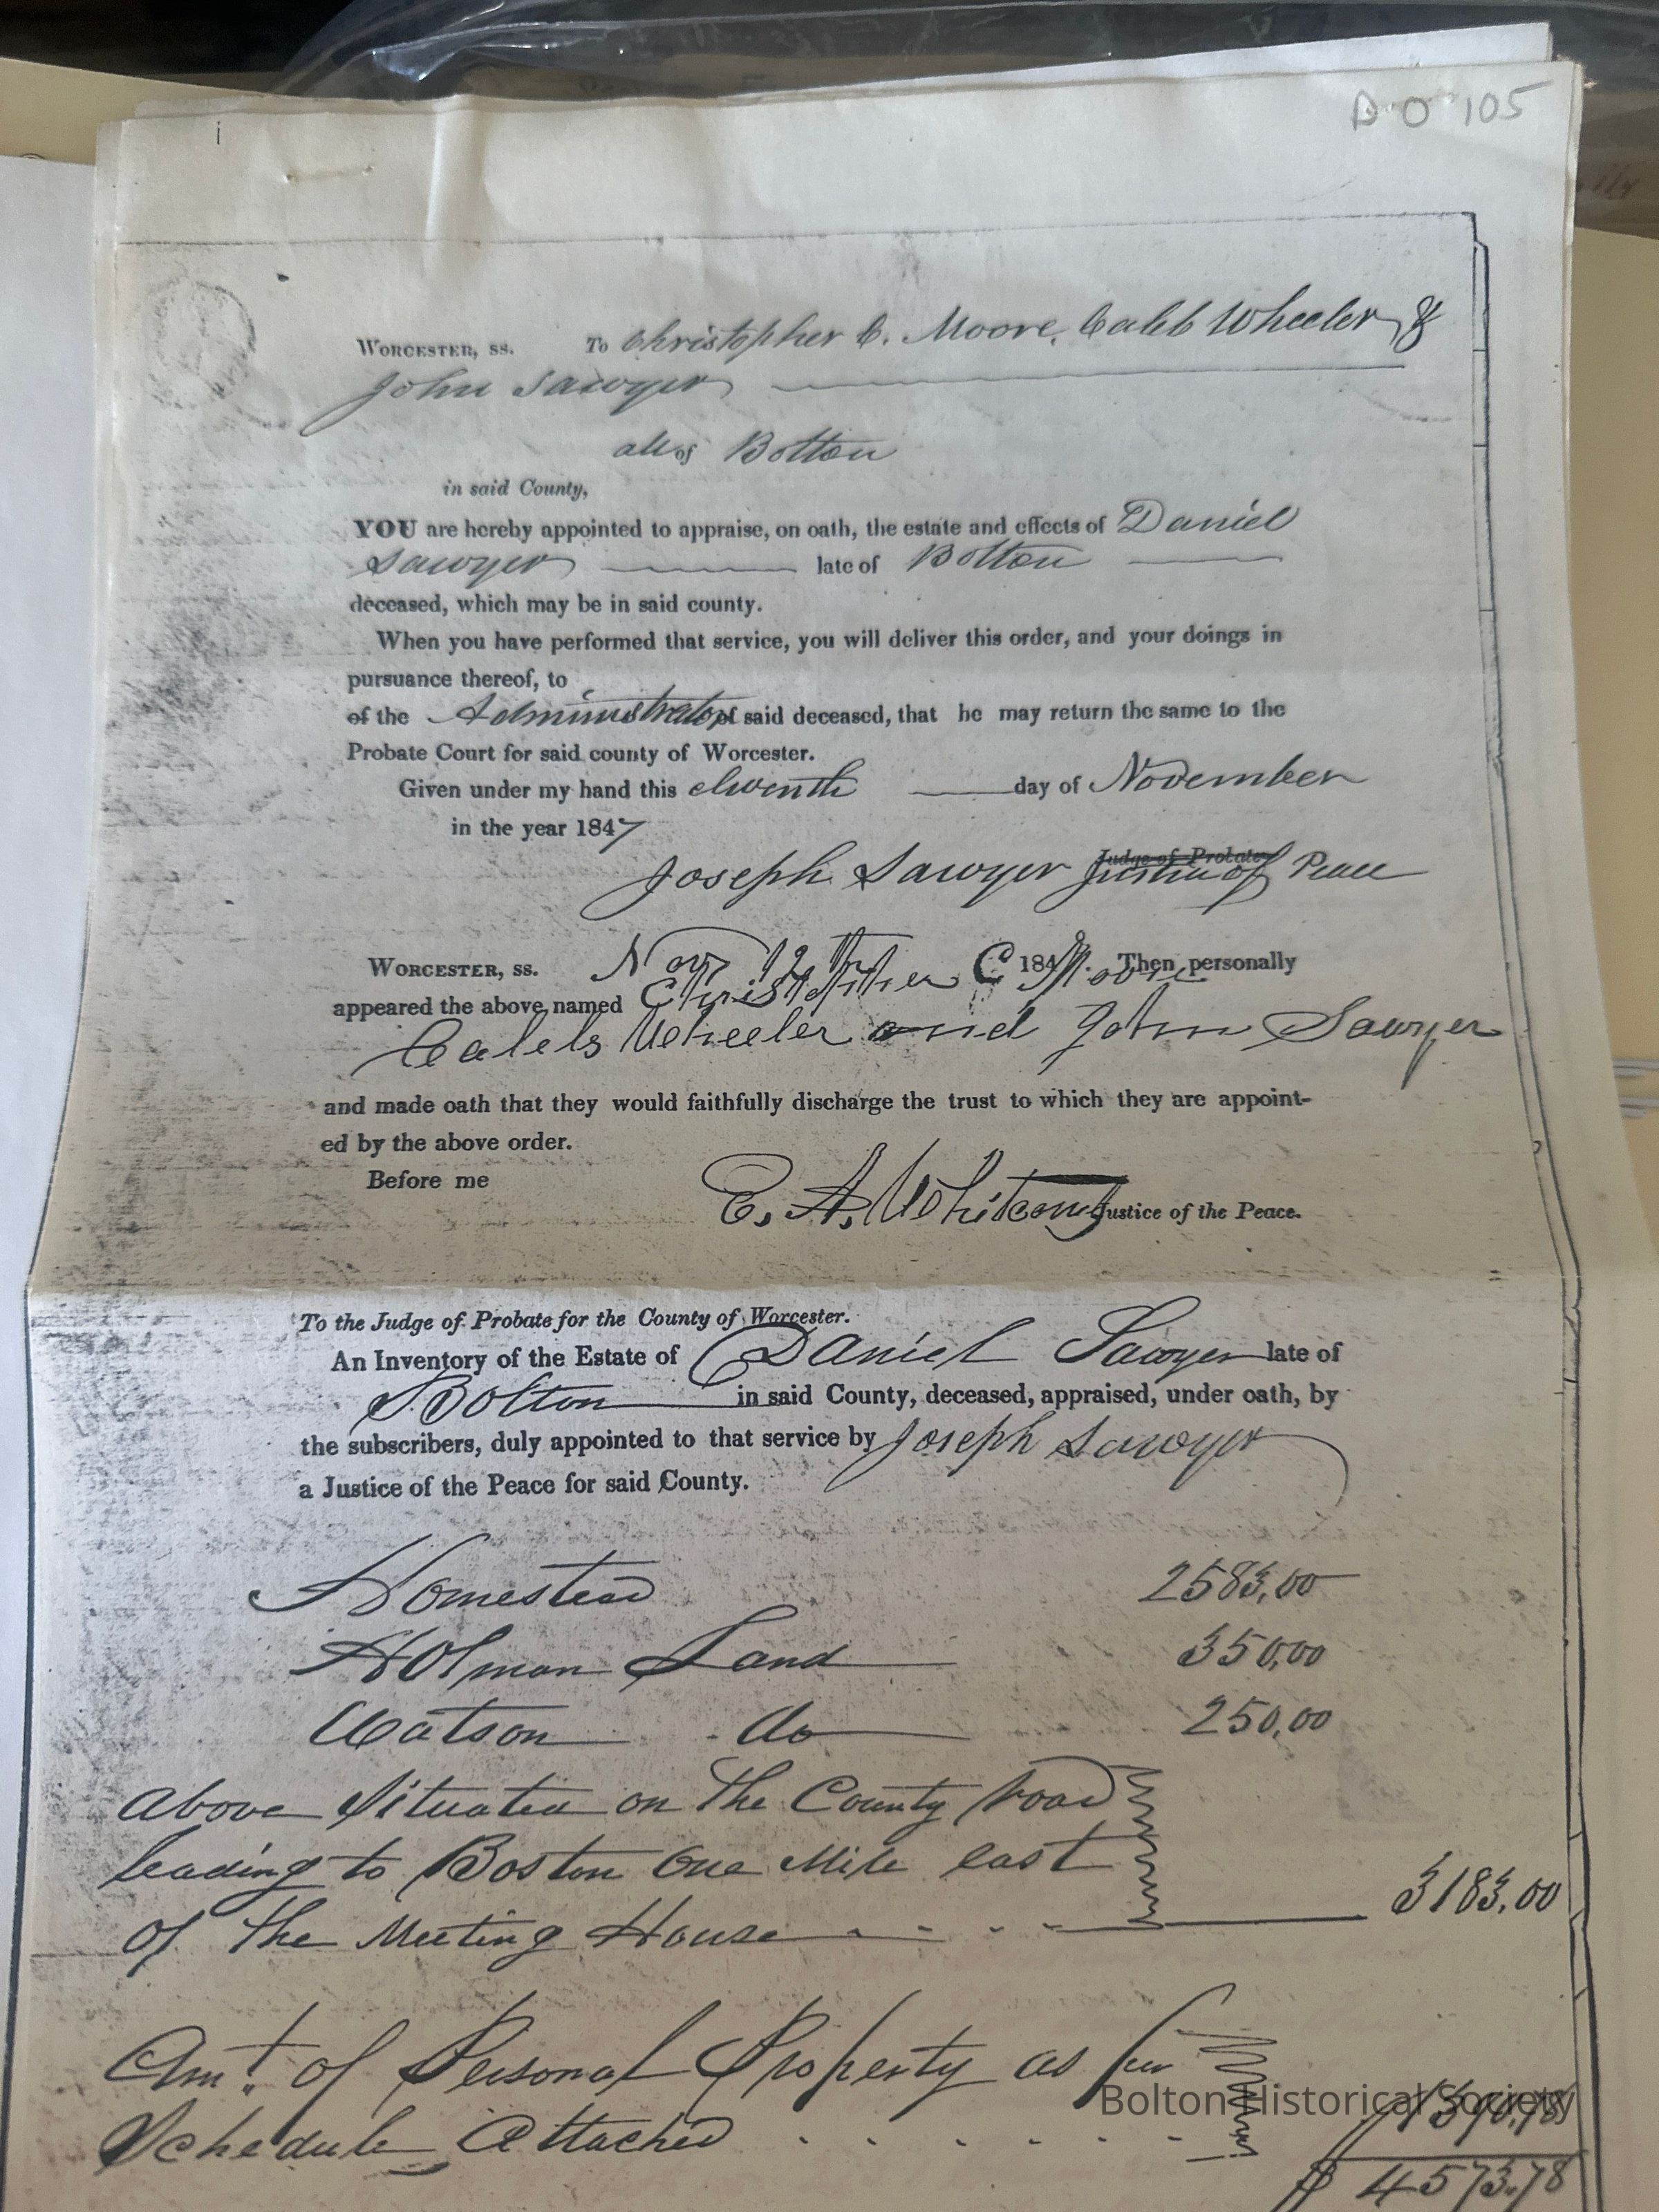 B O 105
WORCESTER, SS. To Christopher C. Moore, Caleb Wheeler &
John Sawyer
all of Bolton
in said County,
YOU are hereby appointed to appraise, on oath, the estate and effects of Daniel
Sawyer late of Bolton
deceased, which may be in said county.
When you have performed that service, you will deliver this order, and your doings in
pursuance thereof, to
of the Administrator of said deceased, that he may return the same to the
Probate Court for said county of Worcester.
Given under my hand this eleventh day of November
in the year 1847
Joseph Sawyer Judge of Probate Justice of Peace
WORCESTER, SS. Nov 12th 184 . Then personally
appeared the above named Christopher C Moore
Caleb Wheeler and John Sawyer
and made oath that they would faithfully discharge the trust to which they are appoint-
ed by the above order.
Before me
E. A. Whitcomb Justice of the Peace.
To the Judge of Probate for the County of Worcester.
An Inventory of the Estate of Daniel Sawyer late of
Bolton in said County, deceased, appraised, under oath, by
the subscribers, duly appointed to that service by Joseph Sawyer
a Justice of the Peace for said County.
Homestead 2583,00
Holman Land 350,00
Watson do 250,00
Above Situated on the County road
leading to Boston One Mile east
of the Meeting House 3183,00
Amt. of Personal Property as per
Schedule Attached 1390.78
$ 4573.78
Bolton Historical Society